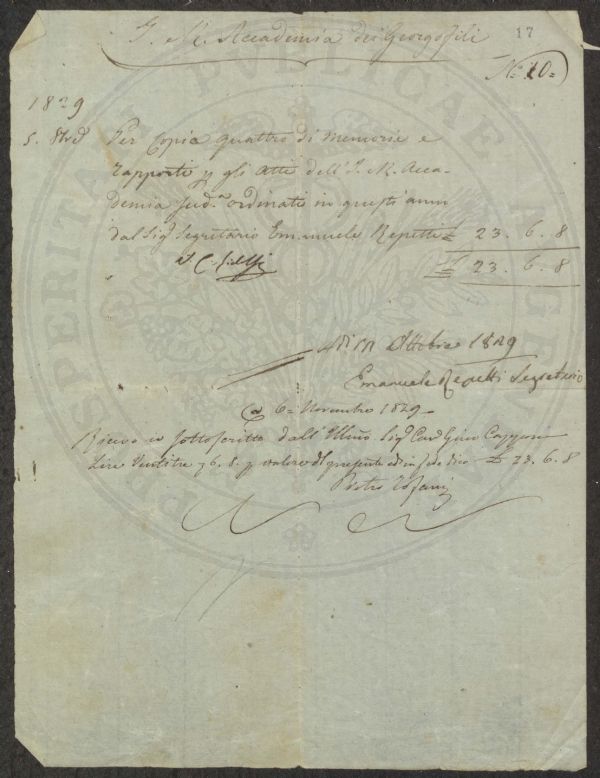 17
I. R. Accademia dei Georgofili
N.° 10=
1829
5. Per Copia quattro di memorie e
rapporti p gli Atti dell'I. R. Acca-
demia Sud.a ordinati in quest'anno
dal Sig.e Segretario Emanuele Repetti £ 23. 6. 8
£ 23. 6. 8
Ottobre 1829
Emanuele Repetti Segretario
6= Novembre 1829
Ricevo io sottoscritto dall'Illmo Sig. Cav Gino Capponi
Lire Ventitre 6. 8. p valore del presente ed in fede dico £ 23. 6. 8
Pietro
PROSPERITATI PUBLICAE AUGENDAE